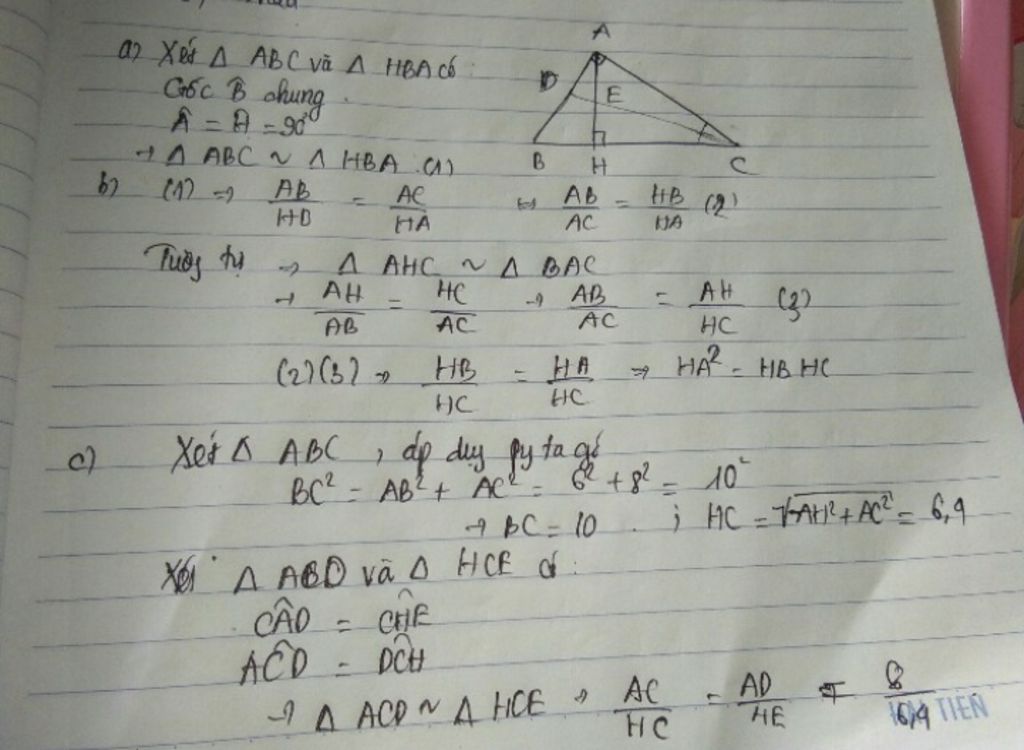 a) Xét Δ ABC và Δ HBA có :
Góc B̂ chung .
Â = Ĥ = 90°
→ Δ ABC ~ Δ HBA (1)
A
D
E
B
H
C
b) (1) ⇒ AB/HB = AC/HA ⇔ AB/AC = HB/HA (2)
Tương tự → Δ AHC ~ Δ BAC
→ AH/AB = HC/AC → AB/AC = AH/HC (3)
(2)(3) ⇒ HB/HC = HA/HC ⇒ HA² = HB HC
c) Xét Δ ABC , áp dụng py ta go
BC² = AB² + AC² = 6² + 8² = 10²
→ BC = 10 . ; HC = √-AH² + AC² = 6,4
Xét Δ ABD và Δ HCE có :
CÂD = CĤE
AĈD = DĈH
→ Δ ACD ~ Δ HCE → AC/HC = AD/HE = 8/6,4
TIEN